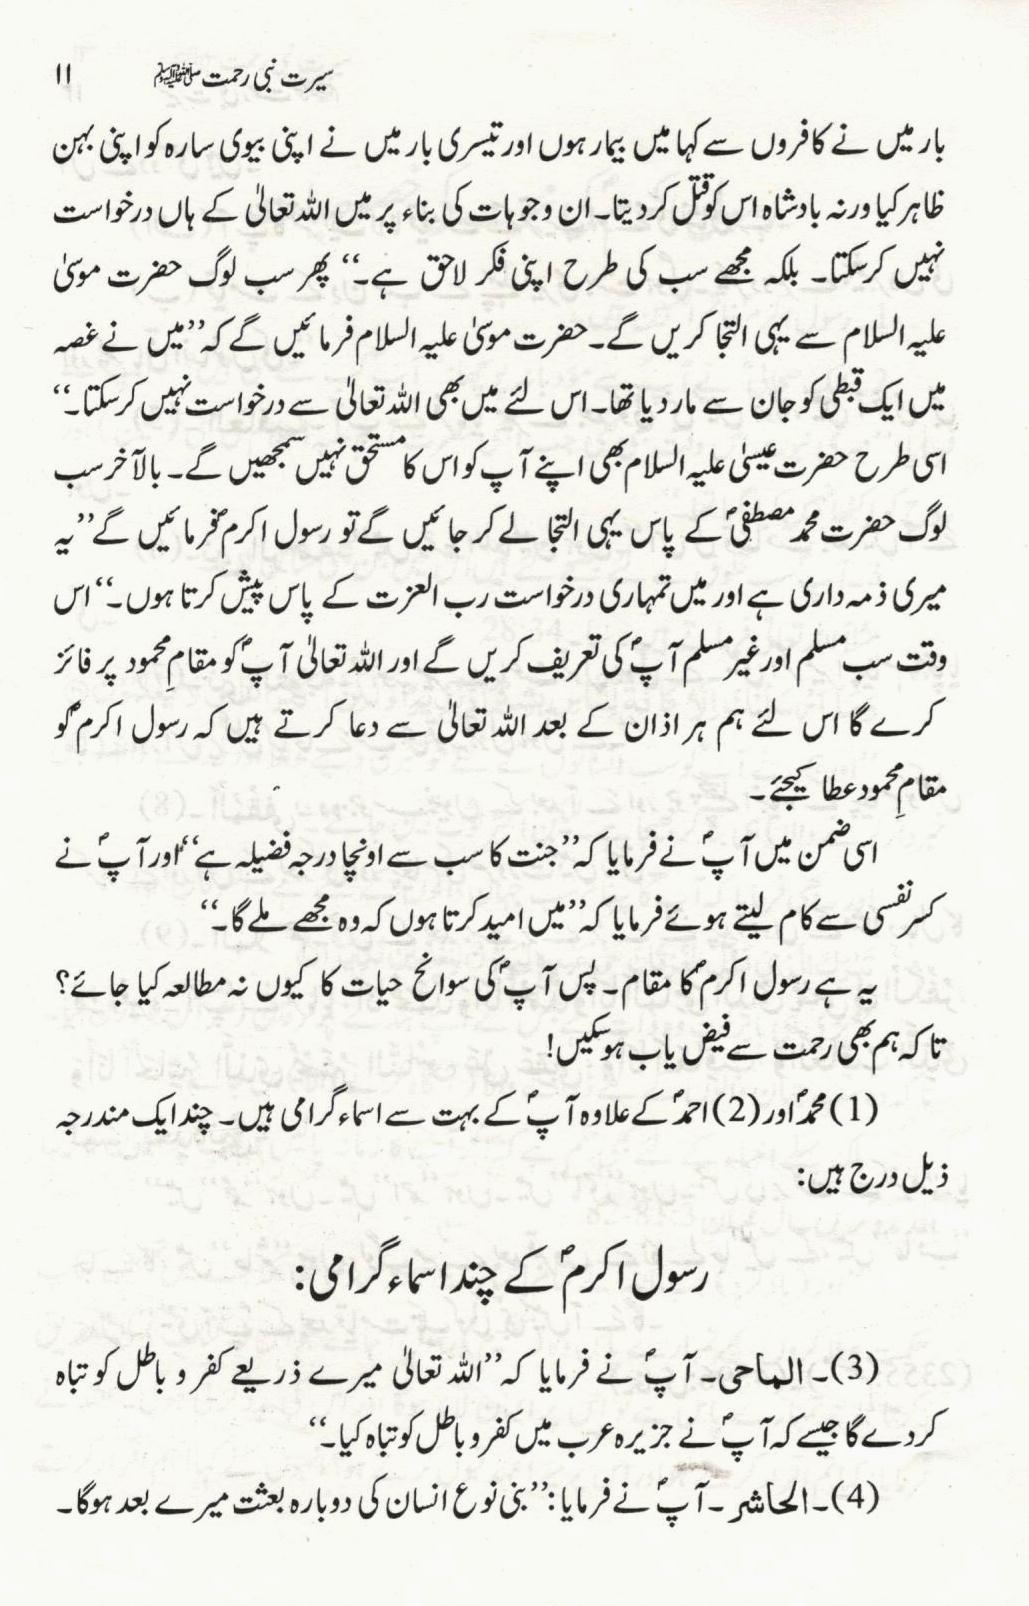 سیرت نبی رحمت ﷺ ۱۱
بار میں نے کافروں سے کہا میں بیمار ہوں اور تیسری بار میں نے اپنی بیوی سارہ کو اپنی بہن
ظاہر کیا ورنہ بادشاہ اس کو قتل کر دیتا۔ ان وجوہات کی بناء پر میں اللہ تعالیٰ کے ہاں درخواست
نہیں کر سکتا۔ بلکہ مجھے سب کی طرح اپنی فکر لاحق ہے۔“ پھر سب لوگ حضرت موسیٰ
علیہ السلام سے یہی التجا کریں گے۔ حضرت موسیٰ علیہ السلام فرمائیں گے کہ ”میں نے غصہ
میں ایک قبطی کو جان سے مار دیا تھا۔ اس لئے میں بھی اللہ تعالیٰ سے درخواست نہیں کر سکتا۔“
اسی طرح حضرت عیسیٰ علیہ السلام بھی اپنے آپ کو اس کا مستحق نہیں سمجھیں گے۔ بالآخر سب
لوگ حضرت محمد مصطفیٰؐ کے پاس یہی التجا لے کر جائیں گے تو رسول اکرمؐ فرمائیں گے ”یہ
میری ذمہ داری ہے اور میں تمہاری درخواست رب العزت کے پاس پیش کرتا ہوں۔“ اس
وقت سب مسلم اور غیر مسلم آپؐ کی تعریف کریں گے اور اللہ تعالیٰ آپؐ کو مقامِ محمود پر فائز
کرے گا اس لئے ہم ہر اذان کے بعد اللہ تعالیٰ سے دعا کرتے ہیں کہ رسول اکرمؐ کو
مقامِ محمود عطا کیجئے۔
اسی ضمن میں آپؐ نے فرمایا کہ ”جنت کا سب سے اونچا درجہ فضیلہ ہے“ اور آپؐ نے
کسر نفسی سے کام لیتے ہوئے فرمایا کہ ”میں امید کرتا ہوں کہ وہ مجھے ملے گا۔“
یہ ہے رسول اکرمؐ کا مقام۔ پس آپؐ کی سوانح حیات کا کیوں نہ مطالعہ کیا جائے؟
تا کہ ہم بھی رحمت سے فیض یاب ہو سکیں!
(1) محمدؐ اور (2) احمدؐ کے علاوہ آپؐ کے بہت سے اسماء گرامی ہیں۔ چند ایک مندرجہ
ذیل درج ہیں:
رسول اکرمؐ کے چند اسماء گرامی:
(3)۔ الماحی۔ آپؐ نے فرمایا کہ ”اللہ تعالیٰ میرے ذریعے کفر و باطل کو تباہ
کر دے گا جیسے کہ آپؐ نے جزیرہ عرب میں کفر و باطل کو تباہ کیا۔“
(4)۔ الحاشر۔ آپؐ نے فرمایا: ”بنی نوع انسان کی دوبارہ بعثت میرے بعد ہوگا۔